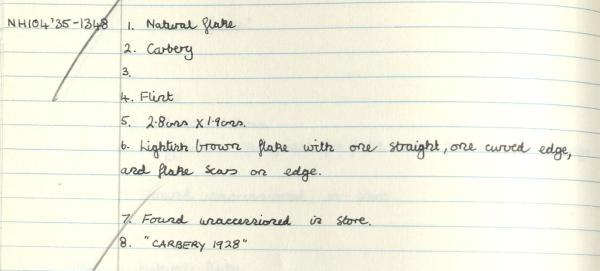 NH104'35-1348 1. Natural flake
2. Carbery
3.
4. Flint
5. 2.8cms x 1.9cms.
6. Lightish brown flake with one straight, one curved edge,
and flake scars on edge.
7. Found unaccessioned in store.
8. "CARBERY 1928"